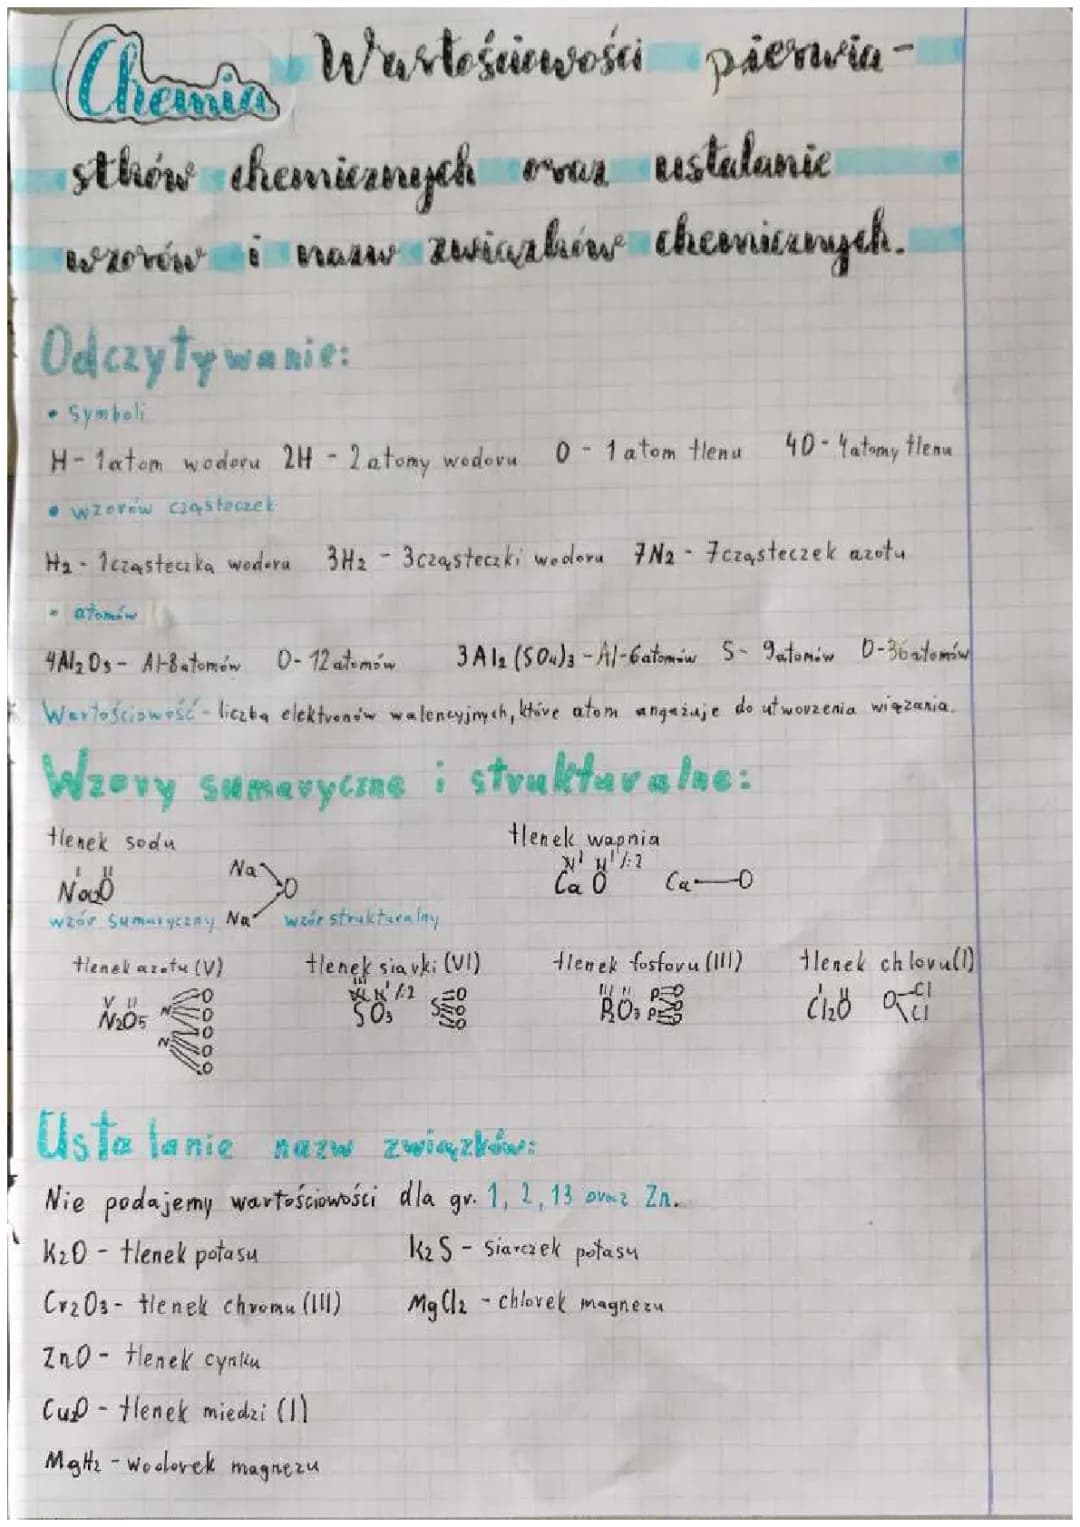 Chemia Wartościowości pierwia-
stków chemicznych oraz ustalanie
wzorów i nazw związków chemicznych.
Odczytywanie:
• Symboli
H - 1 atom wodoru 2H - 2 atomy wodoru O - 1 atom tlenu 4O - 4 atomy tlenu
• wzorów cząsteczek
H2 - 1 cząsteczka wodoru 3H2 - 3 cząsteczki wodoru 7N2 - 7 cząsteczek azotu
• atomów
4Al2O3 - Al-8 atomów O-12 atomów 3Al2(SO4)3 - Al-6 atomów S-9 atomów O-36 atomów
Wartościowość - liczba elektronów walencyjnych, które atom angażuje do utworzenia wiązania.
Wzory sumaryczne i strukturalne:
tlenek sodu tlenek wapnia
I II Na II II /:2
Na2O O CaO Ca O
wzór sumaryczny Na wzór strukturalny
tlenek azotu (V) tlenek siarki (VI) tlenek fosforu (III) tlenek chloru (I)
V II VI II /:2 III II I II
N2O5 N O O O N O O SO3 S O O O P2O3 P O P O O Cl2O O Cl Cl
Ustalanie nazw związków:
Nie podajemy wartościowości dla gr. 1, 2, 13 oraz Zn.
K2O - tlenek potasu K2S - siarczek potasu
Cr2O3 - tlenek chromu (III) MgCl2 - chlorek magnezu
ZnO - tlenek cynku
Cu2O - tlenek miedzi (I)
MgH2 - wodorek magnezu